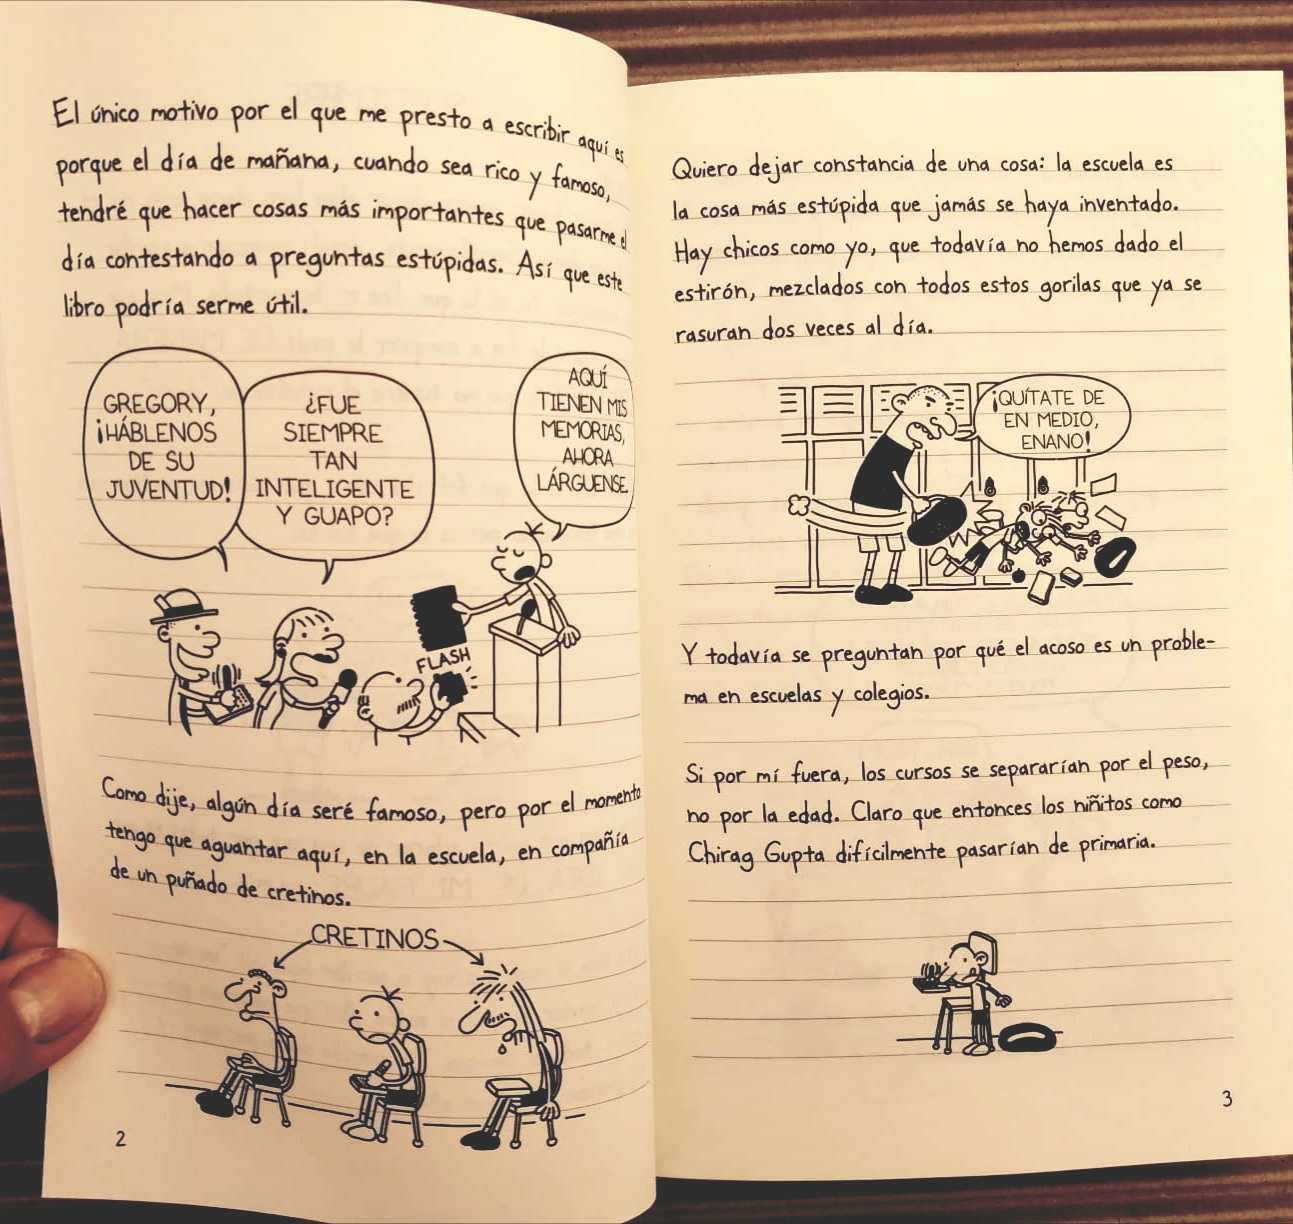 El único motivo por el que me presto a escribir aquí es
porque el día de mañana, cuando sea rico y famoso,
tendré que hacer cosas más importantes que pasarme el
día contestando a preguntas estúpidas. Así que este
libro podría serme útil.
GREGORY,
¡HÁBLENOS
DE SU
JUVENTUD!
¿FUE
SIEMPRE
TAN
INTELIGENTE
Y GUAPO?
AQUÍ
TIENEN MIS
MEMORIAS,
AHORA
LÁRGUENSE.
FLASH
Como dije, algún día seré famoso, pero por el momento
tengo que aguantar aquí, en la escuela, en compañía
de un puñado de cretinos.
CRETINOS
2
Quiero dejar constancia de una cosa: la escuela es
la cosa más estúpida que jamás se haya inventado.
Hay chicos como yo, que todavía no hemos dado el
estirón, mezclados con todos estos gorilas que ya se
rasuran dos veces al día.
¡QUÍTATE DE
EN MEDIO,
ENANO!
Y todavía se preguntan por qué el acoso es un proble-
ma en escuelas y colegios.
Si por mí fuera, los cursos se separarían por el peso,
no por la edad. Claro que entonces los niñitos como
Chirag Gupta difícilmente pasarían de primaria.
3